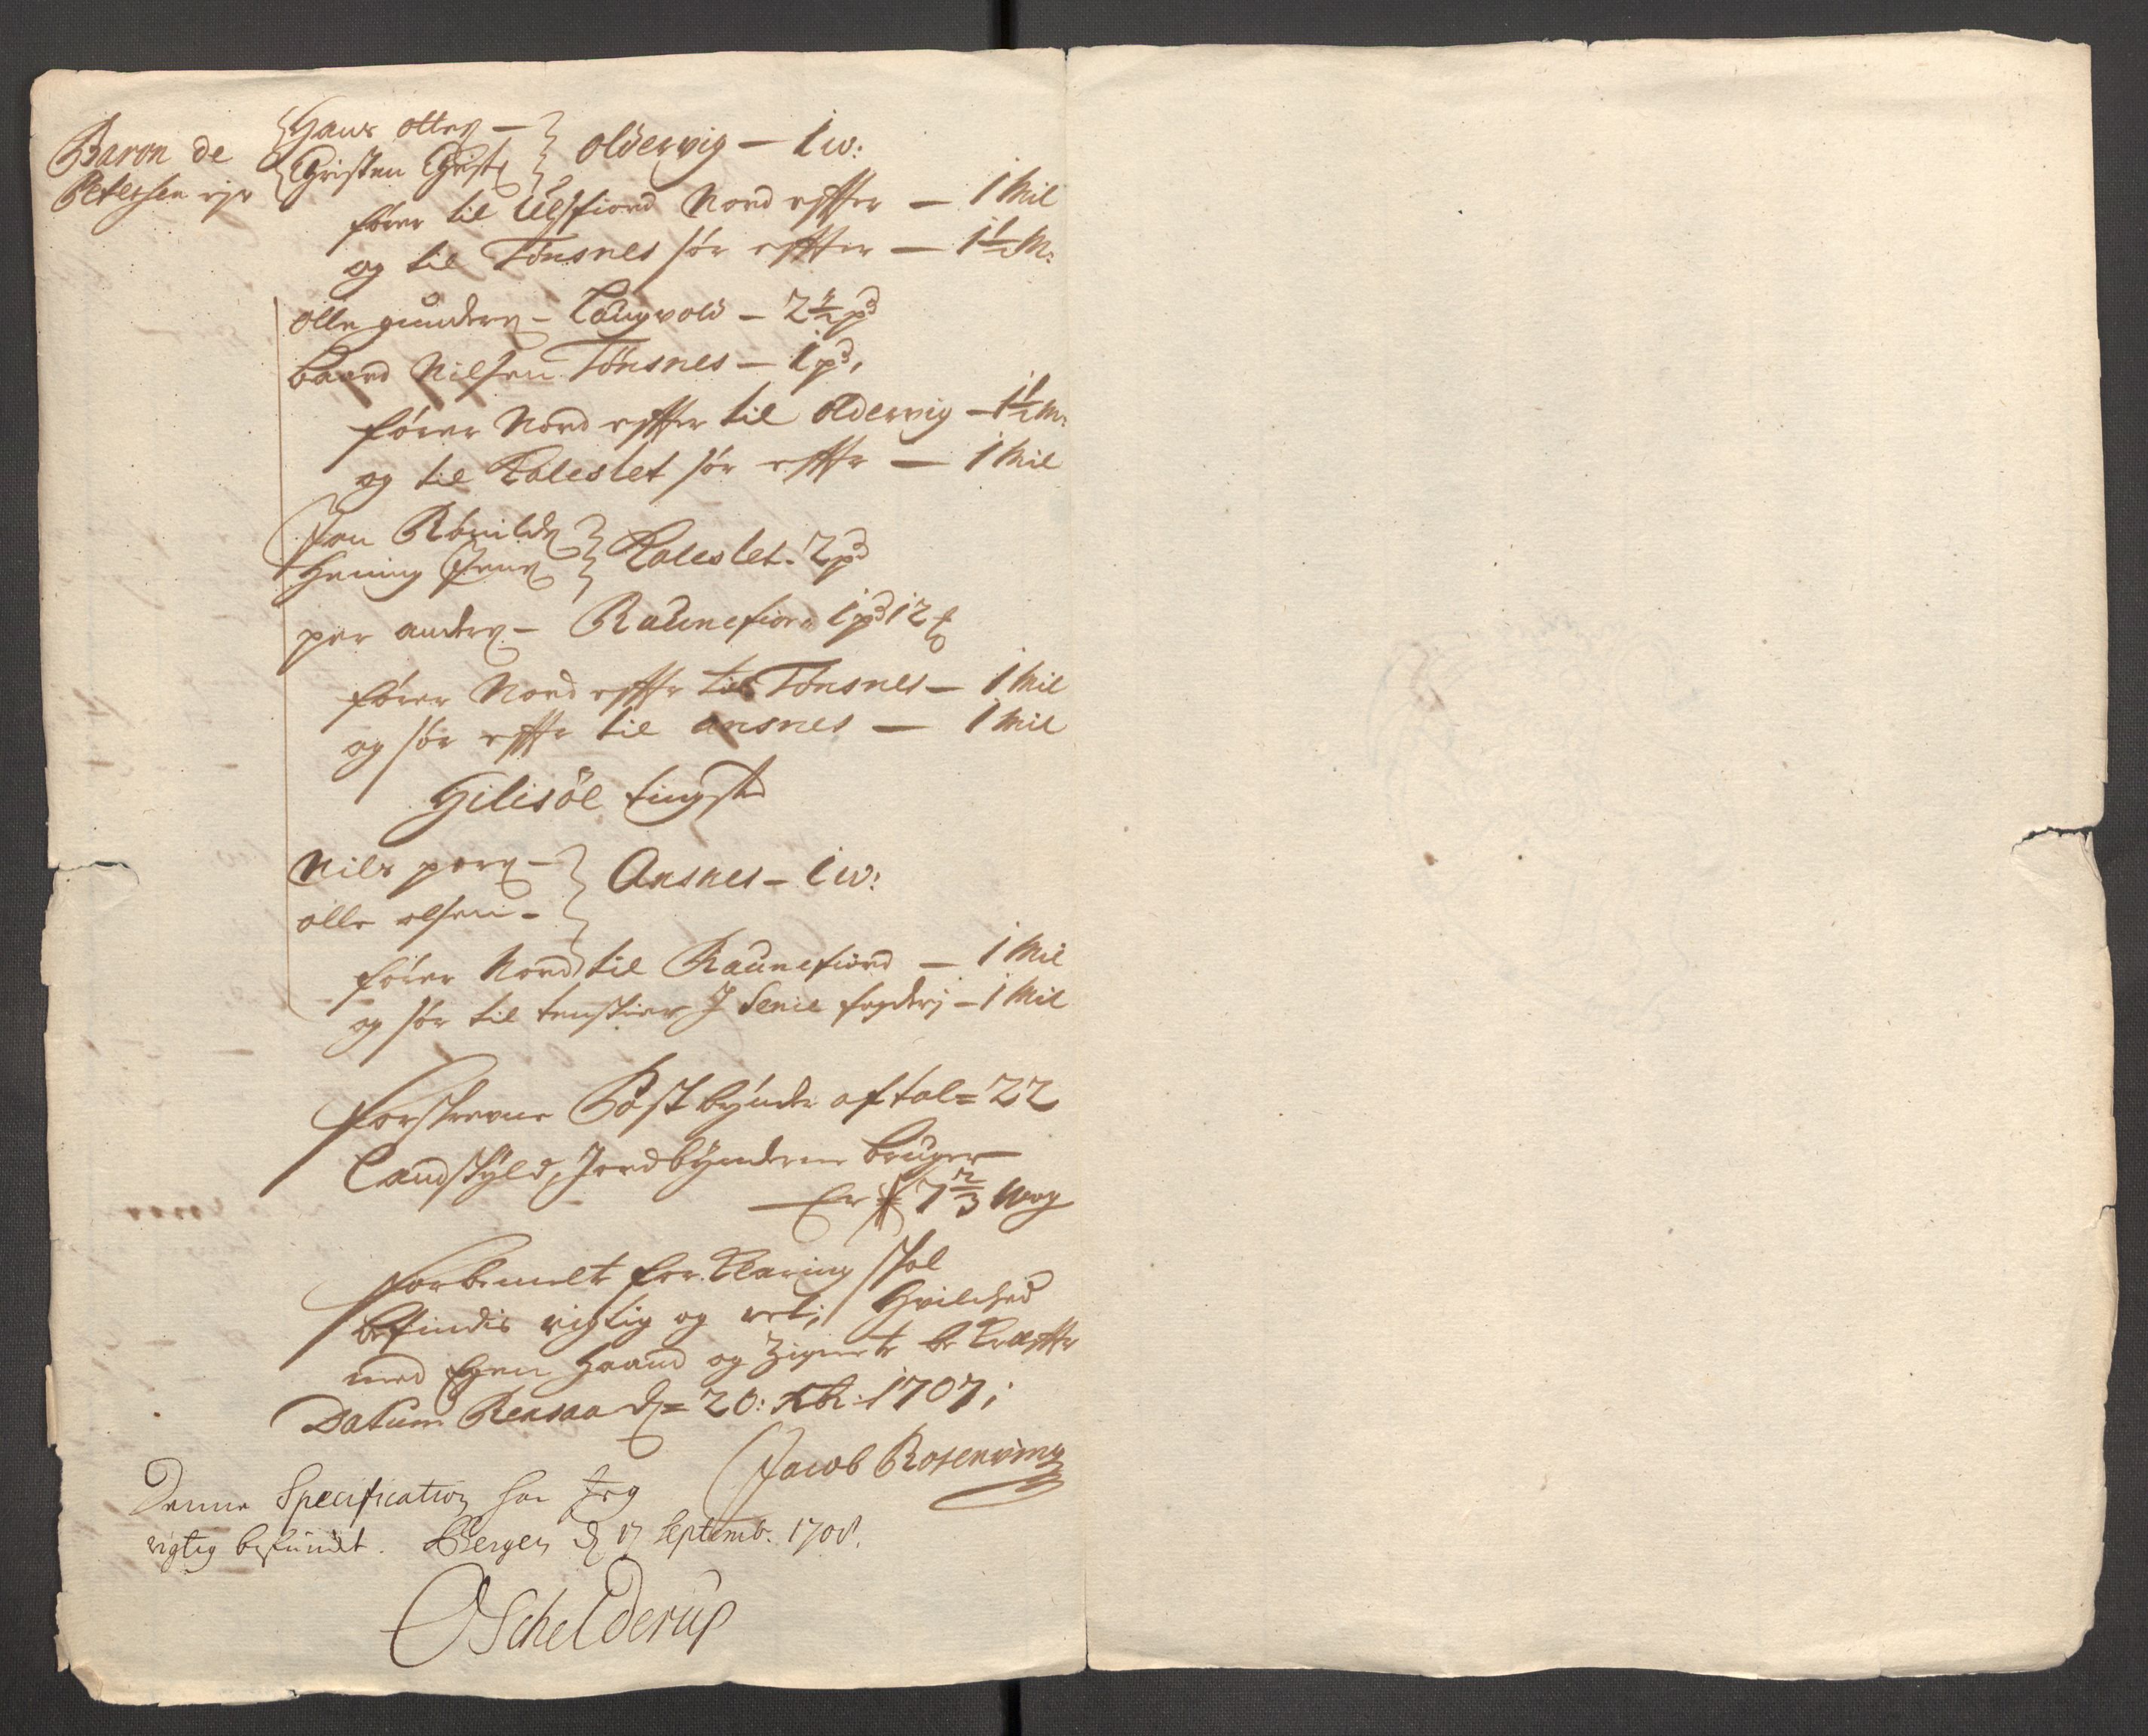 Baron de
Petersen ejr
Hans Otte⟨n⟩ –
Christen Christ
Oldervig – 1 w:
fører til Ulsfiord Nord effter – 1 Mil
og til Tønsnes sør effter – 1½ M:
Olle gunders – Langvold – 2½ pd
Baard Nilsen Tønsnes – 1 pd,
fører Nord effter til Oldervig – 1½ M:
og til Kaleslet sør effter – 1 Mil
Jon
Hening Jens
Kaleslet. 2 pd
per anders – Raunefiord 1 pd 12
fører Nord effter til Tønsnes – 1 Mil
og sør effter til Ansnes – 1 Mil
Gilisøe tingsted
Nils pers –
Olle olsen –
Ansnes – 1 w:
fører Nord til Raunefiord – 1 Mil
og sør til I Senie fogderj – 1 Mil
Forskrevne Postbønder aftal = 22
Landskyld, Jord bønderne bruger
Er 7 2/3 Wog
Forbemelte forklaring skal
befindis rigtig og ret; Hvilched
med Egen Haand og Zignete bekræffter
Datum Rensaa d = 20: Xbr: 1707;
Jacob Rosenving
Denne Specification har Jeg
rigtig befundet. Bergen d 17 Septemb. 1708.
OSchelderup